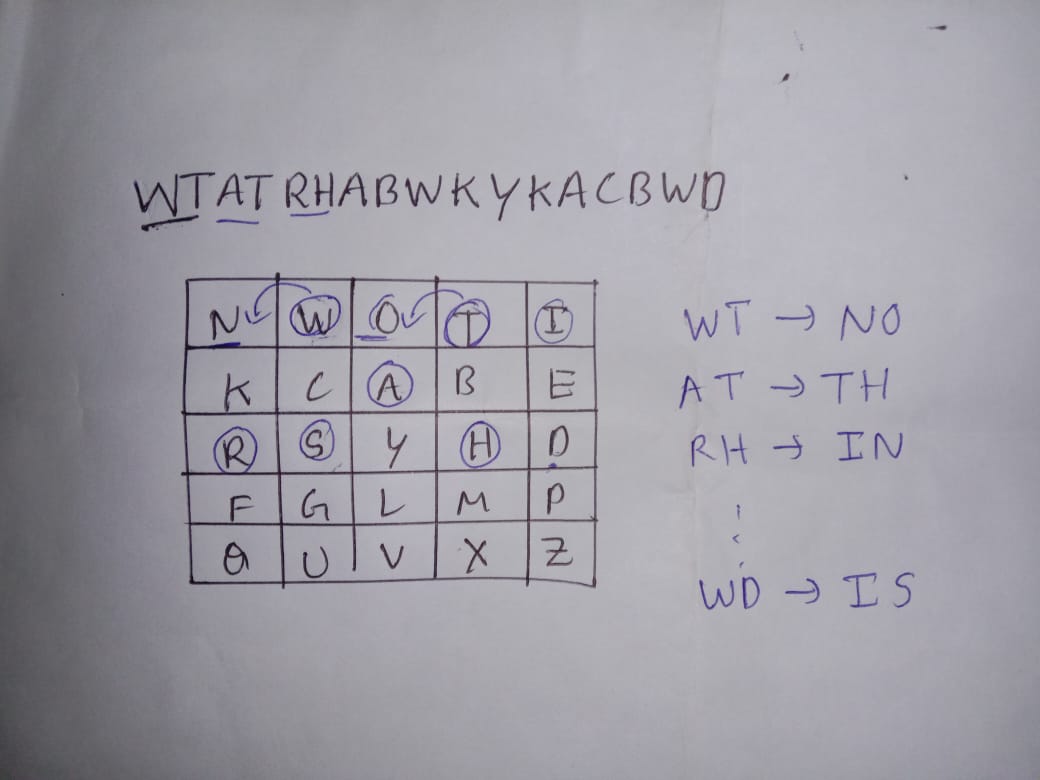 WTATRHABWKYKACBWD
N W O T I
K C A B E
R S Y H D
F G L M P
Q U V X Z
WT → NO
AT → TH
RH → IN
WD → IS